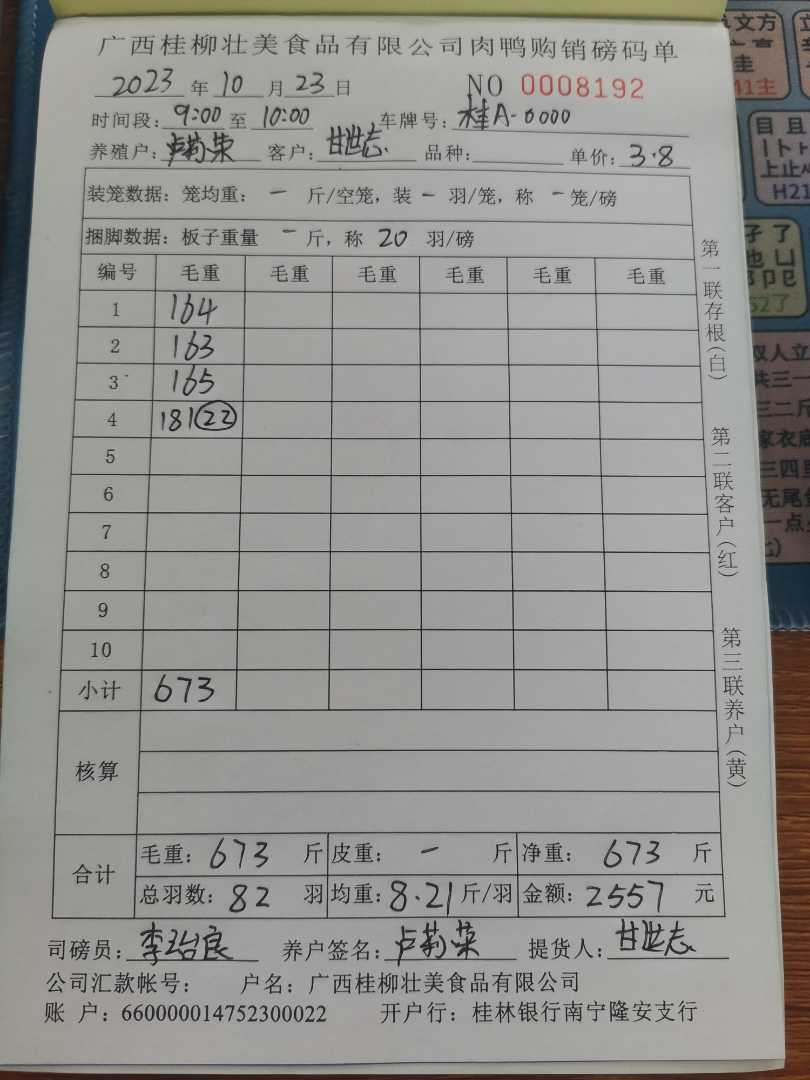 广西桂柳壮美食品有限公司肉鸭购销磅码单
2023 年 10 月 23 日 NO 0008192
时间段：9:00 至 10:00 车牌号：桂A-0000
养殖户：卢莉荣 客户：甘世志 品种： 单价：3.8
装笼数据：笼均重：- 斤/空笼，装 - 羽/笼，称 - 笼/磅
捆脚数据：板子重量 - 斤，称 20 羽/磅
编号 毛重 毛重 毛重 毛重 毛重 毛重
1 164
2 163
3 165
4 181 22
5
6
7
8
9
10
小计 673
核算
合计 毛重：673 斤 皮重：- 斤 净重：673 斤
总羽数：82 羽 均重：8.21 斤/羽 金额：2557 元
司磅员：李治良 养户签名：卢莉荣 提货人：甘世志
公司汇款帐号： 户名：广西桂柳壮美食品有限公司
账 户：660000014752300022 开户行：桂林银行南宁隆安支行
第一联存根(白)
第二联客户(红)
第三联养户(黄)
文方
圭
41主
目 且
上止
H21
子 了
也 山
52了
双人立
共三一
三二斤
家衣底
三四里
无尾
一点